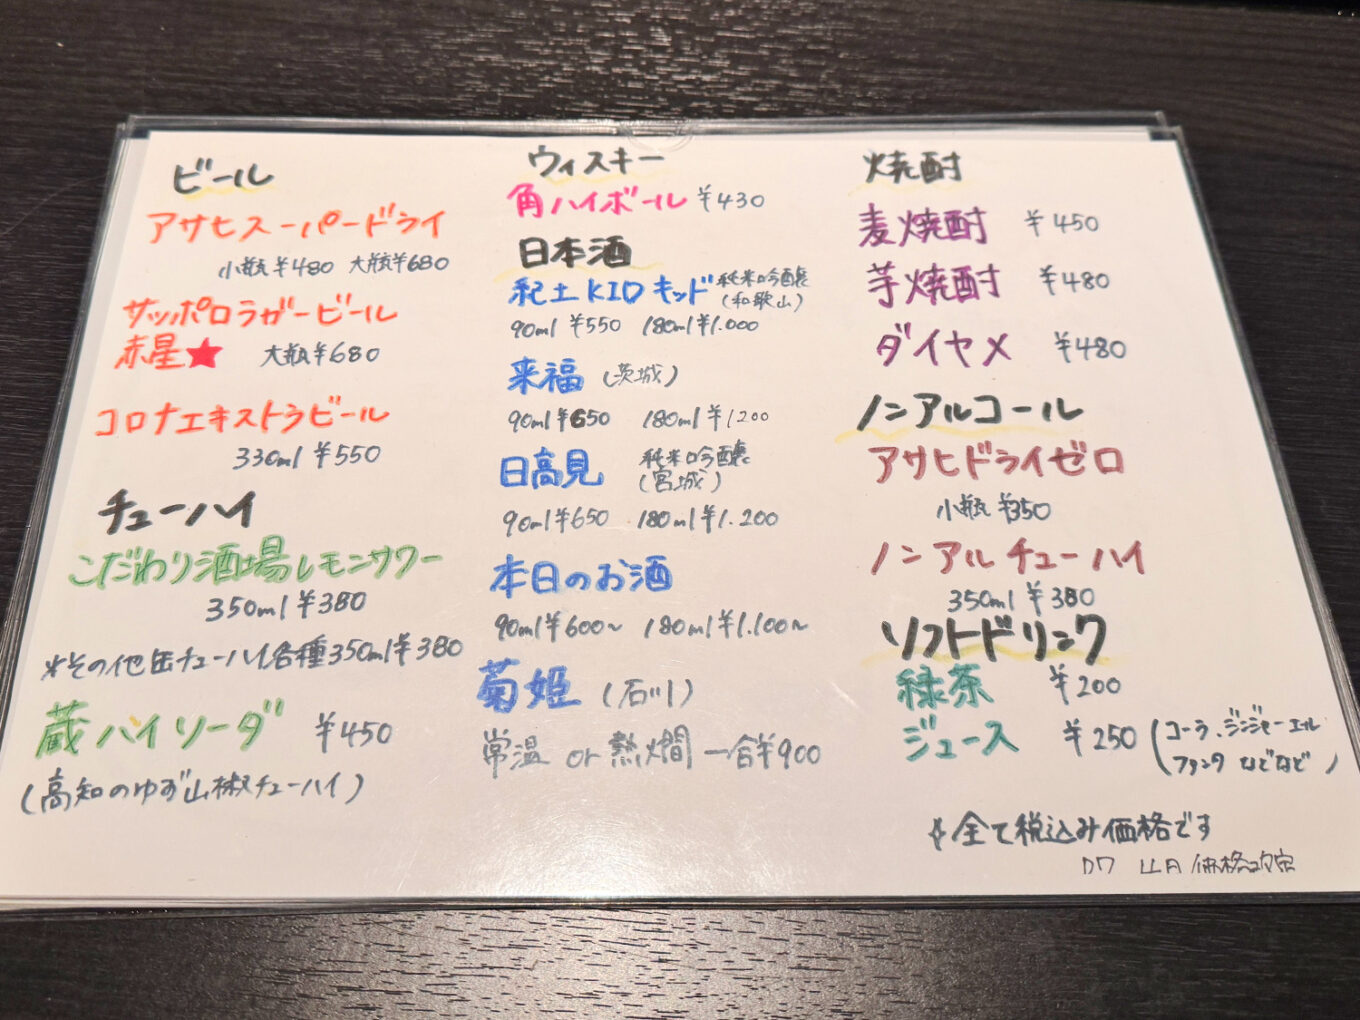 ビール
アサヒスーパードライ
小瓶¥480 大瓶¥680
サッポロラガービール
赤星★ 大瓶¥680
コロナエキストラビール
330ml ¥550
チューハイ
こだわり酒場レモンサワー
350ml ¥380
*その他缶チューハイ各種350ml¥380
蔵ハイソーダ ¥450
(高知のゆず山椒チューハイ)
ウィスキー
角ハイボール ¥430
日本酒
紀土KIDキッド 純米吟醸
(和歌山)
90ml ¥550 180ml¥1.000
来福 (茨城)
90ml¥650 180ml¥1200
日高見 純米吟醸
(宮城)
90ml¥650 180ml¥1.200
本日のお酒
90ml¥600~ 180ml¥1.100~
菊姫 (石川)
常温 or 熱燗 一合¥900
焼酎
麦焼酎 ¥450
芋焼酎 ¥480
ダイヤメ ¥480
ノンアルコール
アサヒドライゼロ
小瓶 ¥350
ノンアルチューハイ
350ml ¥380
ソフトドリンク
緑茶 ¥200
ジュース ¥250 (コーラ、ジンジャーエル
ファンタ などなど)
全て税込み価格です
価格改定